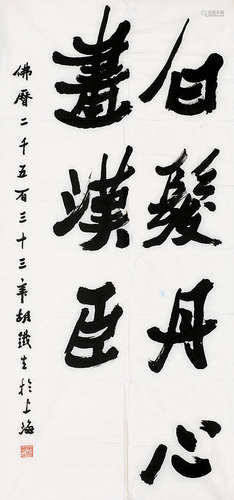 白髮丹心
盡漢臣
佛曆二千五百三十三年胡鐵生於上海